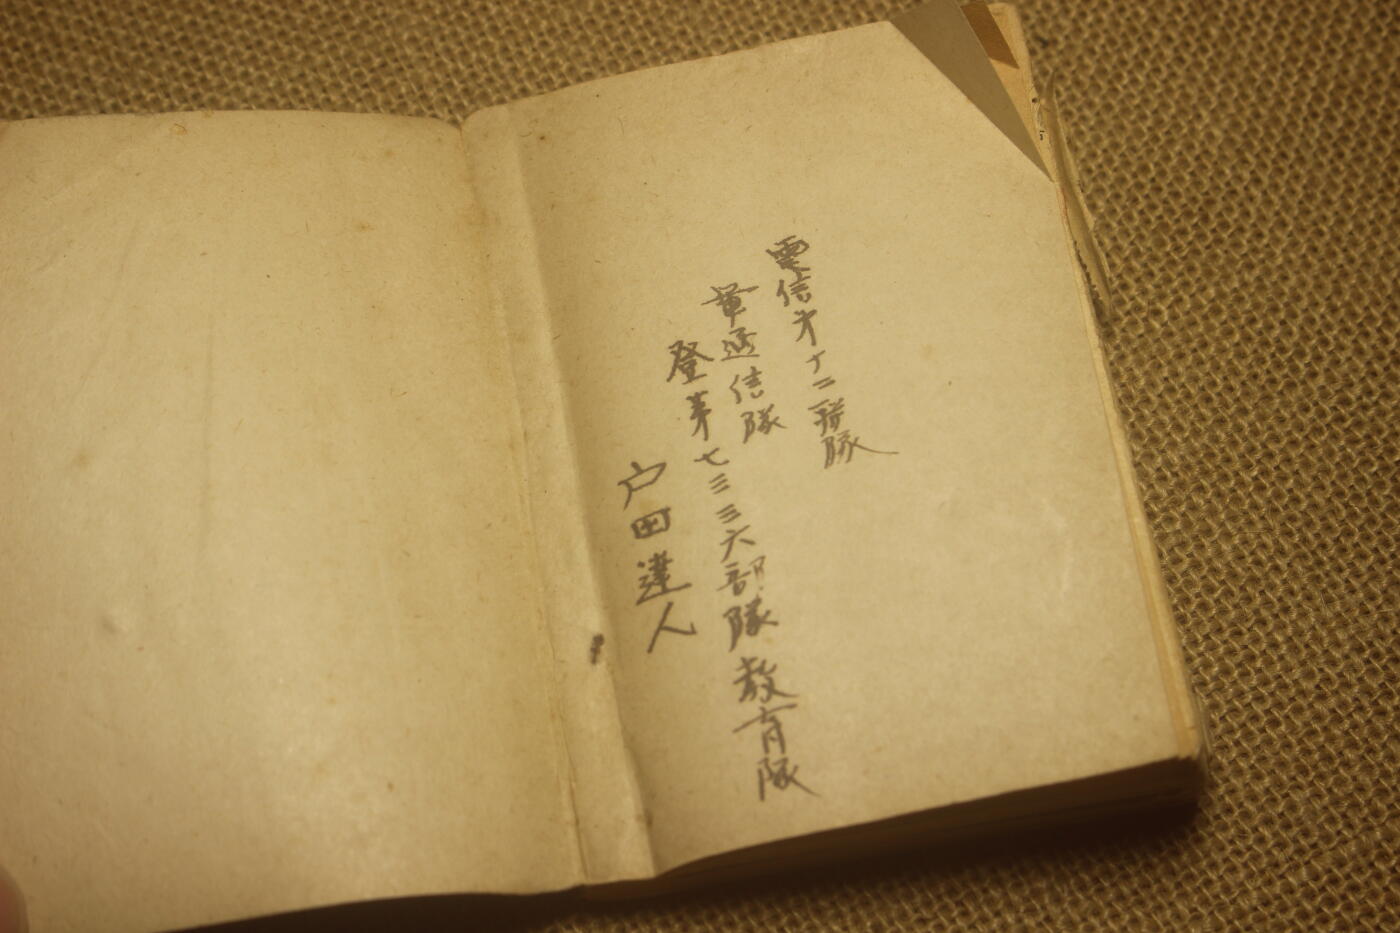 電信才十二聯隊
軍通信隊
登第七三三六部隊教育隊
戸田達人